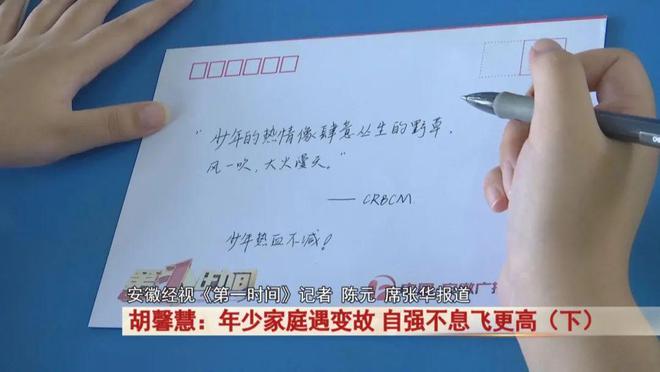 “少年的热情像肆意丛生的野草，
风一吹，大火漫天。”
—— CRBCM
少年热血不减！
第1时间
安徽经视《第一时间》记者 陈元 席张华报道
胡馨慧：年少家庭遇变故 自强不息飞更高（下）